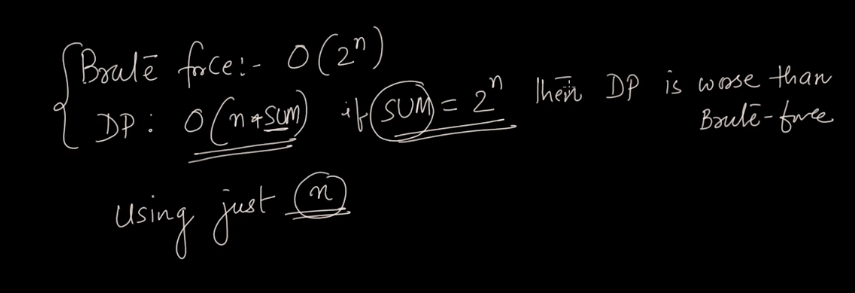 Brute force:- O(2ⁿ)
DP: O(n*SUM) if SUM = 2ⁿ then DP is worse than
Brute-force
using just n